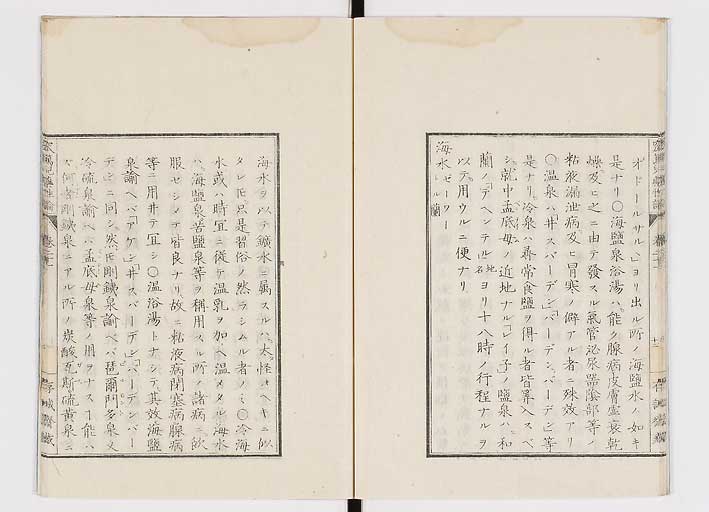 オドールサル」ヨリ出ル所ノ海鹽水ノ如キ
是ナリ○海鹽泉浴湯ハ能ク腺病皮膚虚衰乾
燥及ヒ之ニ由テ發スル氣管泌尿器陰部等ノ
粘液漏泄病及ヒ冒寒ノ僻アル者ニ殊效アリ
○温泉ハ「井スバーデン」「バーデンバーデン」等
是ナリ冷泉ハ尋常食鹽ヲ得ル者皆算入スベ
シ就中孟底母ノ近地ナル「レイ子ノ鹽泉ハ和
蘭ノ「デヘンテル地名ヨリ十八時ノ行程ナルヲ
以テ用ウルニ便ナリ
海水ゼーワートル蘭
海水ヲ以テ鑛水ニ屬スルハ太タ怪ムヘキニ似
タレ𪜈只是習俗ノ然ラシムル者ノミ○冷海
水或ハ時宜ニ從テ温乳ヲ加ヘ温メタル海水
ハ海鹽泉苦鹽泉等ヲ稱用スル所ノ諸病ニ飲
服セシメテ皆良ナリ故ニ粘液病閉塞病腺病
等ニ用井テ宜シ○温浴湯トナシテ其效海鹽
泉諭ヘハ「アケン」「井スバーデン」「バーデンバー
デン」ニ同シ然𪜈剛鐵泉諭ヘバ琵爾門多泉又
冷硫泉諭ヘハ孟底母泉等ノ用ヲナスヿ能ハ
ス何者剛鐵泉ニアル所ノ炭酸瓦斯硫黄泉ニ